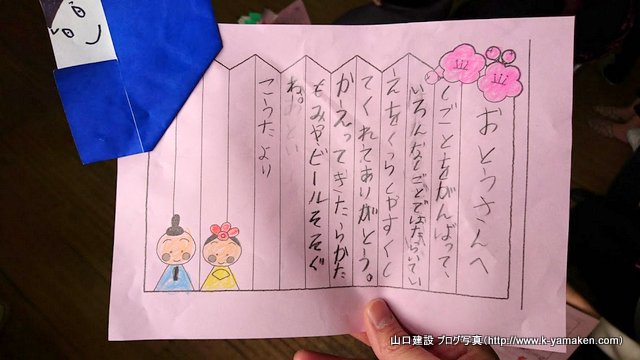 おとうさんへ
しごとをがんばって、
いろんなしごとではたらいてい
えをくらしやすくし
てくれてありがとう。
かえってきたらかた
もみやビールそそぐ
ね。
こうたより
山口建設 ブログ写真(http://www.k-yamaken.com)